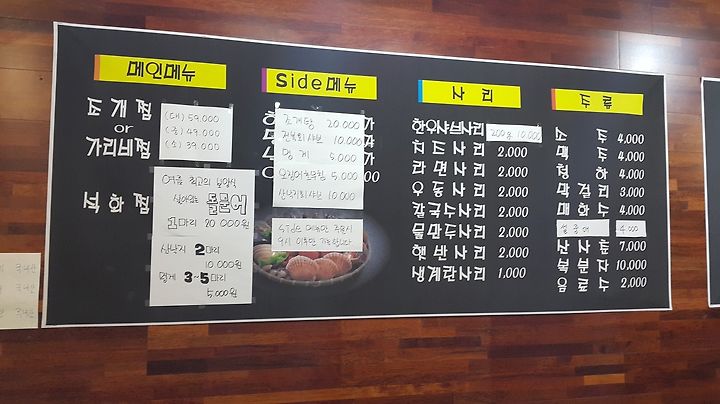 메인메뉴
조개찜
or
가리비찜
(대) 59.000
(중) 49.000
(소) 39.000
석화찜
여름 최고의 보양식
살아있는 돌문어
1마리 20000원
산낙지 2마리
10.000원
멍게 3~5마리
5.000원
Side메뉴
조개탕 20.000
전복회/사브 10.000
멍게 5.000
오징어초무침 5.000
산낙지회/사브 10.000
side 메뉴만 주문시
9시 이후만 가능합니다
사리
한우샤브사리 200g 10,000
치즈사리 2,000
라면사리 2,000
우동사리 2,000
칼국수사리 2,000
물만두사리 2,000
햇반사리 2,000
생계란사리 1,000
주류
소주 4,000
맥주 4,000
청하 4,000
막걸리 3,000
매화수 4,000
설중매 4.000
난사랑 7,000
복분자 10,000
음료수 2,000
국내산
국내산